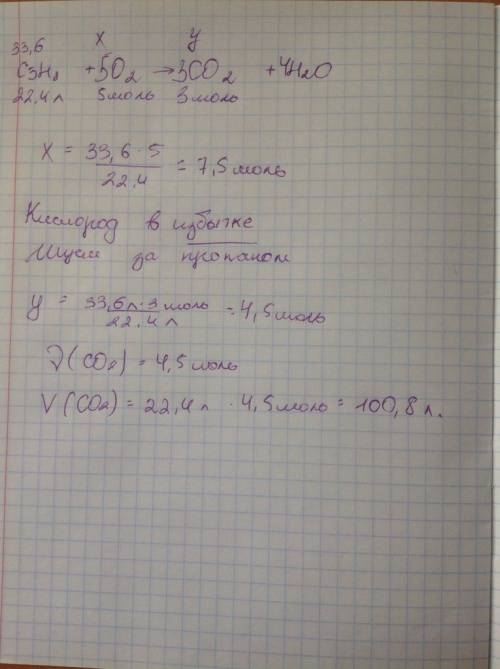 33,6 x y
C3H8 + 5O2 → 3CO2 + 4H2O
22,4 л 5 моль 3 моль
X = 33,6 · 5 / 22,4 = 7,5 моль
Кислород в избытке
Ищем за пропаном
y = 33,6 л · 3 моль / 22,4 л = 4,5 моль
ν(CO2) = 4,5 моль
V(CO2) = 22,4 л · 4,5 моль = 100,8 л.